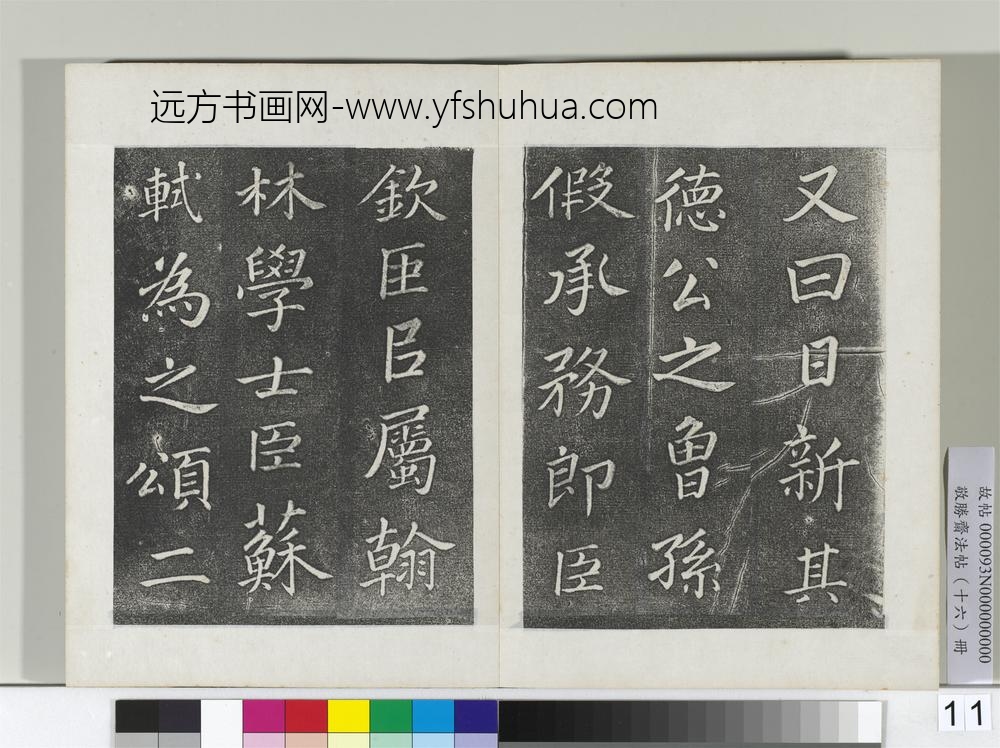 远方书画网-www.yfshuhua.com
又曰日新其
德公之曾孫
假承務郎臣
欽臣㠯屬翰
林學士臣蘇
軾為之頌二
故帖 000093N000000000
敬勝齋法帖(十六)冊
11